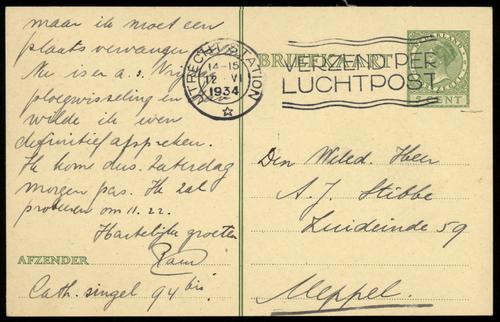 maar ik moet een
plaatsvervanger
Nu is er a.s. Vrij
ploegwisseling en
wilde ik even
definitief afspreken.
Ik kom dus Zaterdag
morgen pas. Ik zal
proberen om 11.22.
Hartelijke groeten
AFZENDER
Cath. singel 94 bis
UTRECHT STATION
14-15
12 VI
1934
BRIEFKAART
VERZEND PER
LUCHTPOST
CENT
Den Weled. Heer
A. J. Stibbe
Zuideinde 59
Meppel.